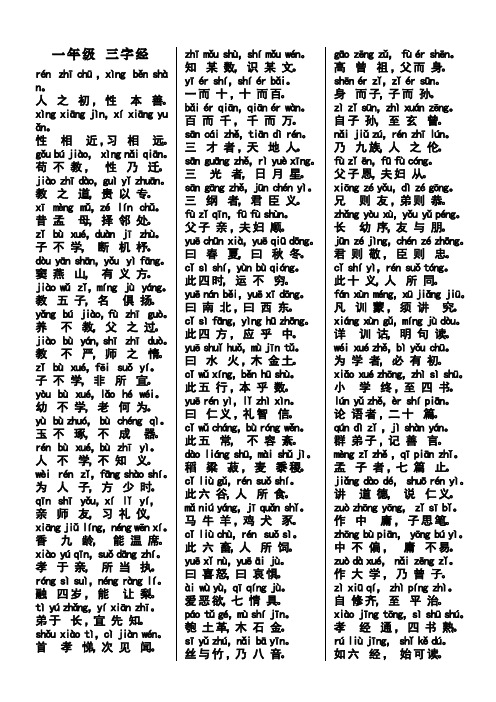 一年级 三字经
rén zhī chū，xìng běn shà
n。
人 之 初，性 本 善。
xìng xiāng jìn，xí xiāng yu
ǎn。
性 相 近，习 相 远。
gǒu bú jiào，xìng nǎi qiān。
苟 不 教，性 乃 迁。
jiào zhī dào，guì yǐ zhuān。
教 之 道，贵 以 专。
xī mèng mǔ，zé lín chǔ。
昔 孟 母，择 邻 处。
zǐ bù xué，duàn jī zhù。
子 不 学，断 机 杼。
dòu yān shān，yǒu yì fāng。
窦 燕 山，有 义 方。
jiào wǔ zǐ，míng jù yáng。
教 五 子，名 俱 扬。
yǎng bú jiào，fù zhī guò。
养 不 教，父 之 过。
jiào bù yán，shī zhī duò。
教 不 严，师 之 惰。
zǐ bù xué，fēi suǒ yí。
子 不 学，非 所 宜。
yòu bù xué，lǎo hé wéi。
幼 不 学，老 何 为。
yù bù zhuó，bù chéng qì。
玉 不 琢，不 成 器。
rén bù xué，bù zhī yì。
人 不 学，不 知 义。
wèi rén zǐ，fāng shào shí。
为 人 子，方 少 时。
qīn shī yǒu，xí lǐ yí，
亲 师 友，习 礼 仪。
xiāng jiǔ líng，néng wēn xí。
香 九 龄，能 温 席。
xiào yú qīn，suǒ dāng zhí。
孝 于 亲，所 当 执。
róng sì suì，néng ràng lí。
融 四 岁，能 让 梨。
tì yú zhǎng，yí xiān zhī。
弟 于 长，宜 先 知。
shǒu xiào tì，cì jiàn wén。
首 孝 悌，次 见 闻。
zhī mǒu shù，shí mǒu wén。
知 某 数，识 某 文。
yī ér shí，shí ér bǎi。
一 而 十，十 而 百。
bǎi ér qiān，qiān ér wàn。
百 而 千，千 而 万。
sān cái zhě，tiān dì rén。
三 才 者，天 地 人。
sān guāng zhě，rì yuè xīng。
三 光 者，日 月 星。
sān gāng zhě，jūn chén yì。
三 纲 者，君 臣 义。
fù zǐ qīn，fū fù shùn。
父 子 亲，夫 妇 顺。
yuē chūn xià，yuē qiū dōng。
曰 春 夏，曰 秋 冬。
cǐ sì shí，yùn bù qióng。
此 四 时，运 不 穷。
yuē nán běi，yuē xī dōng。
曰 南 北，曰 西 东。
cǐ sì fāng，yìng hū zhōng。
此 四 方，应 乎 中。
yuē shuǐ huǒ，mù jīn tǔ。
曰 水 火，木 金 土。
cǐ wǔ xíng，běn hū shù。
此 五 行，本 乎 数。
yuē rén yì，lǐ zhì xìn。
曰 仁 义，礼 智 信。
cǐ wǔ cháng，bù róng wěn。
此 五 常，不 容 紊。
dào liáng shū，mài shǔ jì。
稻 粱 菽，麦 黍 稷。
cǐ liù gǔ，rén suǒ shí。
此 六 谷，人 所 食。
mǎ niú yáng，jī quǎn shǐ。
马 牛 羊，鸡 犬 豕。
cǐ liù chù，rén suǒ sì。
此 六 畜，人 所 饲。
yuē xǐ nù，yuē āi jù。
曰 喜 怒，曰 哀 惧。
ài wù yù，qī qíng jù。
爱 恶 欲，七 情 具。
páo tǔ gé，mù shí jīn。
匏 土 革，木 石 金。
sī yǔ zhú，nǎi bā yīn。
丝 与 竹，乃 八 音。
gāo zēng zǔ，fù ér shēn。
高 曾 祖，父 而 身。
shēn ér zǐ，zǐ ér sūn。
身 而 子，子 而 孙。
zì zǐ sūn，zhì xuán zēng。
自 子 孙，至 玄 曾。
nǎi jiǔ zú，rén zhī lún。
乃 九 族，人 之 伦。
fù zǐ ēn，fū fù cóng。
父 子 恩，夫 妇 从。
xiōng zé yǒu，dì zé gōng。
兄 则 友，弟 则 恭。
zhǎng yòu xù，yǒu yǔ péng。
长 幼 序，友 与 朋。
jūn zé jìng，chén zé zhōng。
君 则 敬，臣 则 忠。
cǐ shí yì，rén suǒ tóng。
此 十 义，人 所 同。
fán xùn méng，xū jiǎng jiū。
凡 训 蒙，须 讲 究。
xiáng xùn gǔ，míng jù dòu。
详 训 诂，明 句 读。
wéi xué zhě，bì yǒu chū。
为 学 者，必 有 初。
xiǎo xué zhōng，zhì sì shū。
小 学 终，至 四 书。
lún yǔ zhě，èr shí piān。
论 语 者，二 十 篇。
qún dì zǐ ，jì shàn yán。
群 弟 子，记 善 言。
mèng zǐ zhě ，qī piān zhǐ。
孟 子 者，七 篇 止。
jiǎng dào dé， shuō rén yì。
讲 道 德，说 仁 义。
zuò zhōng yōng，zǐ sī bǐ。
作 中 庸，子 思 笔。
zhōng bù piān，yōng bú yì。
中 不 偏，庸 不 易。
zuò dà xué，nǎi zēng zǐ。
作 大 学，乃 曾 子。
zì xiū qí，zhì píng zhì。
自 修 齐，至 平 治。
xiào jīng tōng，sì shū shú。
孝 经 通，四 书 熟。
rú liù jīng，shǐ kě dú。
如 六 经，始 可 读。